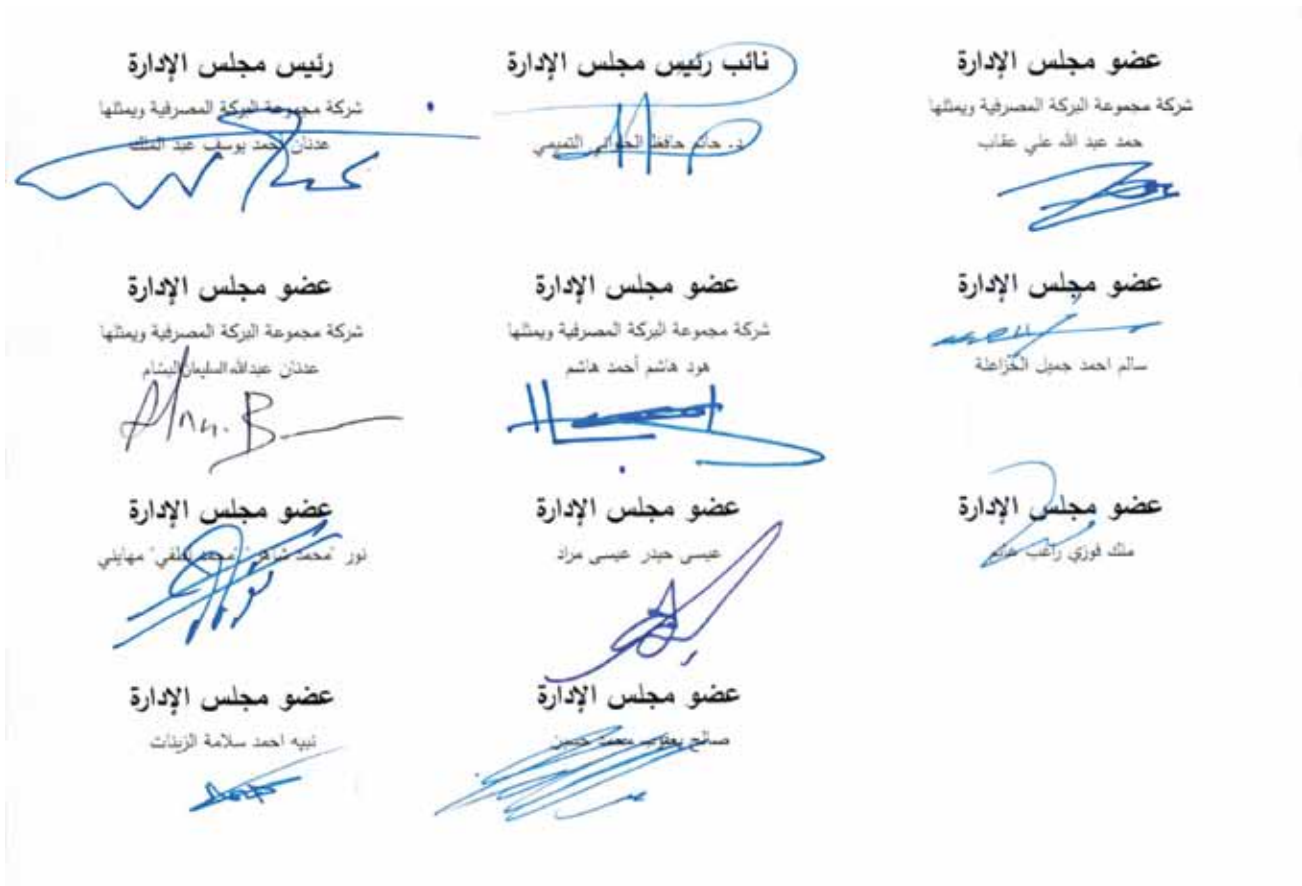 عضو مجلس الإدارة
شركة مجموعة البركة المصرفية ويمثلها
حمد عبد الله علي عقاب
نائب رئيس مجلس الإدارة
د. حاتم حافظ الحلواني التميمي
رئيس مجلس الإدارة
شركة مجموعة البركة المصرفية ويمثلها
عدنان أحمد يوسف عبد الملك
عضو مجلس الإدارة
سالم احمد جميل الخزاعلة
عضو مجلس الإدارة
شركة مجموعة البركة المصرفية ويمثلها
هود هاشم أحمد هاشم
عضو مجلس الإدارة
شركة مجموعة البركة المصرفية ويمثلها
عدنان عبدالله السليمان البسام
عضو مجلس الإدارة
ملك فوزي راغب غانم
عضو مجلس الإدارة
عيسى حيدر عيسى مراد
عضو مجلس الإدارة
نور "محمد شاهر" "محمد لطفي" مهايني
عضو مجلس الإدارة
صالح يعقوب محمد حسين
عضو مجلس الإدارة
نبيه احمد سلامة الزينات